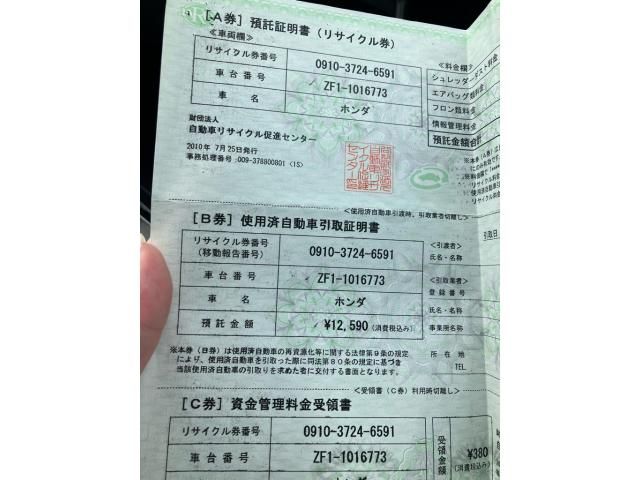 [A券] 預託証明書(リサイクル券)
≪車両欄≫
リサイクル券番号 0910-3724-6591
車台番号 ZF1-1016773
車名 ホンダ
財団法人
自動車リサイクル促進センター
2010年 7月25日発行
事務処理番号:009-378800801 (1S)
≪料金欄≫
シュレッダーダスト料金
エアバッグ類料金
フロン類料金
情報管理料金
預託金額合計
<使用済自動車引渡時、引取業者切離し>
[B券] 使用済自動車引取証明書
リサイクル券番号
(移動報告番号) 0910-3724-6591
車台番号 ZF1-1016773
車名 ホンダ
預託金額 ¥12,590 (消費税込み)
引取日
<引渡者>
氏名・名称
<引取業者>
登録番号
氏名・名称
事業所名称
所在地
TEL
※本券(B券)は使用済自動車の再資源化等に関する法律第9条の規定
により、使用済自動車を引取った際に同法第80条の規定に基づき
当該使用済自動車の引取りを求めた者に交付する書面となります。
<受領書(C券)利用時切離し>
[C券] 資金管理料金受領書
リサイクル券番号 0910-3724-6591
車台番号 ZF1-1016773
受領金額 ¥380
(消費税込み)